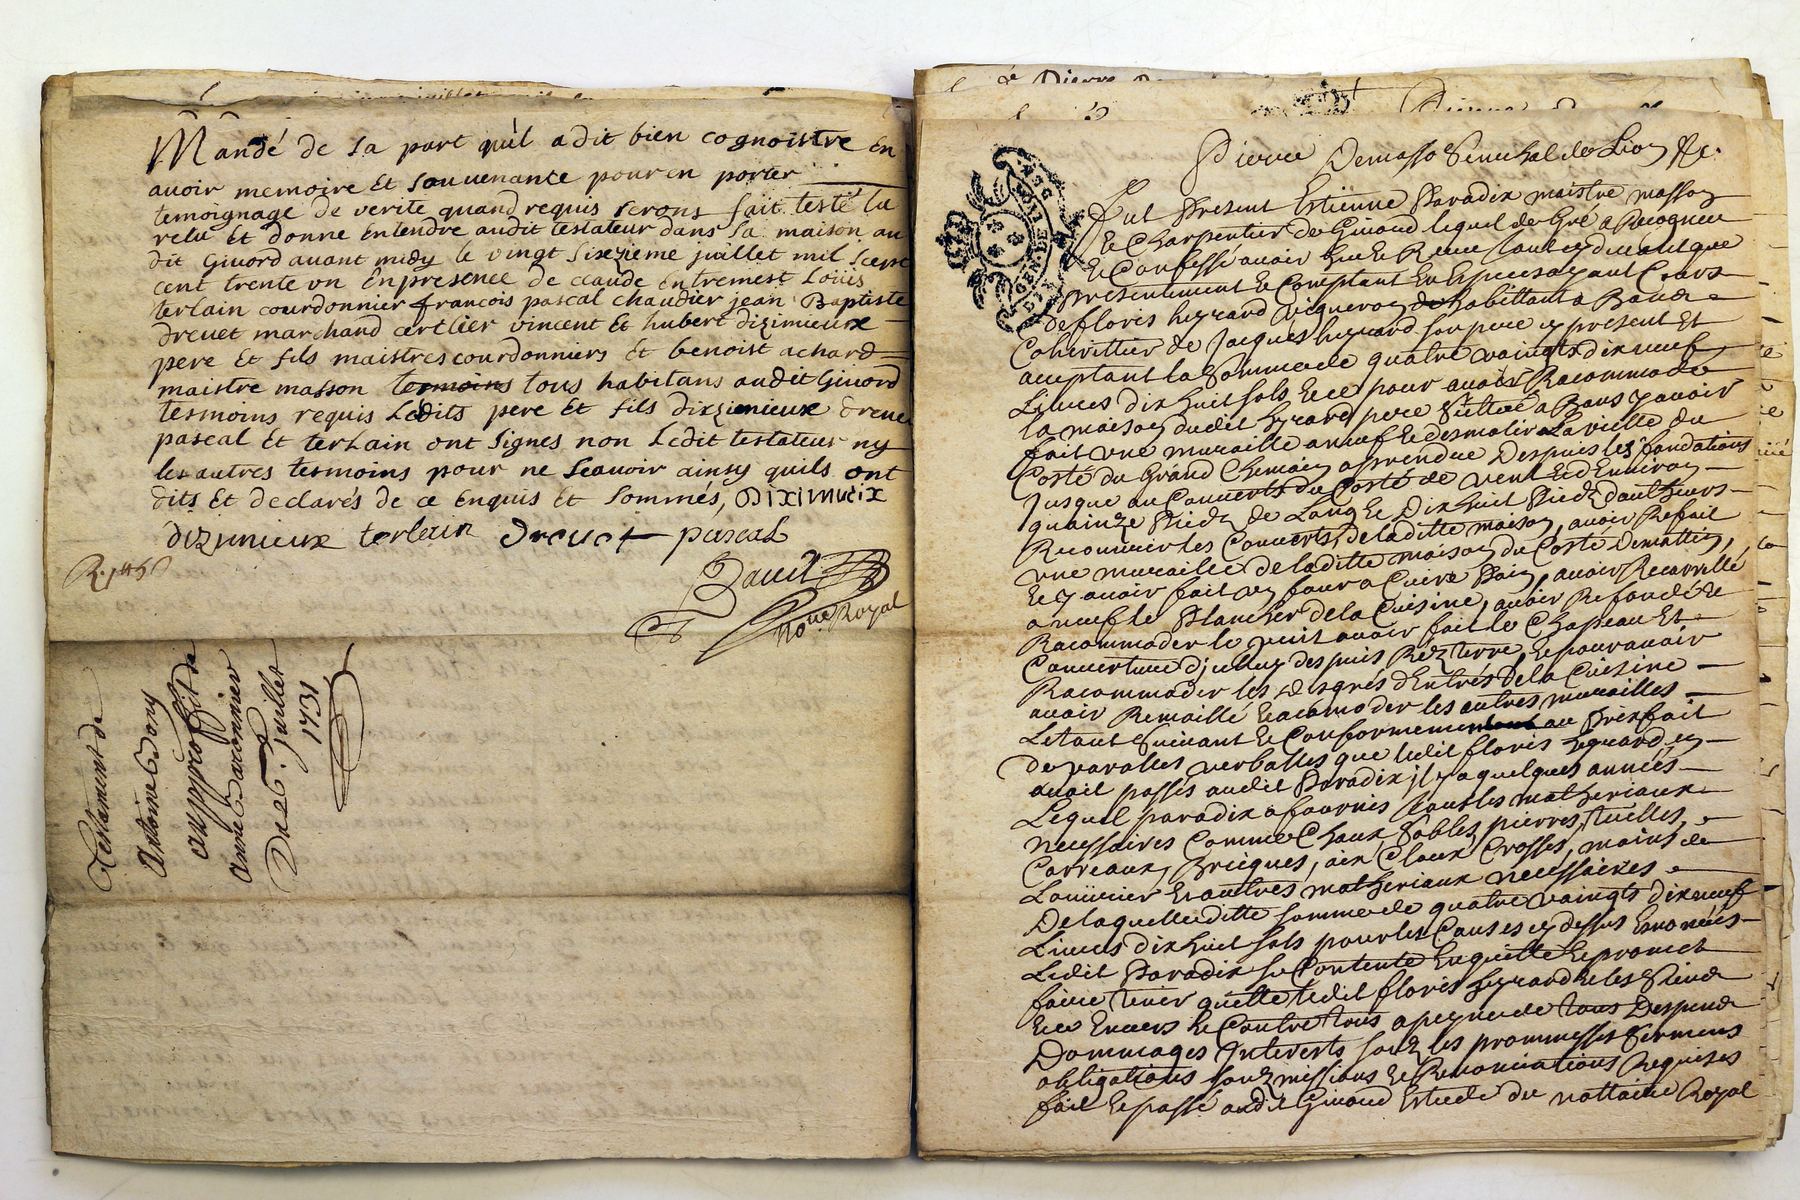 Mandé de sa part qu'il a dit bien cognoistre en
avoir memoire et souvenante pour en porter
temoignage de verite quand requis serons fait testé lu
relu et donne entendre audit testateur dans sa maison au
dit Givord avant midy le vingt sixzieme juillet mil sept
cent trente un en presence de claude entremest Loüis
terlain courdonnier françois pascal chaudier jean Baptiste
drevet marchand cartlier vincent et hubert dizimieux
pere et fils maistres courdonniers et benoist achard
maistre masson tesmoins tous habitans audit Givord
tesmoins requis Lédits pere et fils dizzimieux drevet
pascal et terlain ont signes non Ledit testateur ny
les autres tesmoins pour ne scavoir ainsy quils ont
dits et declarés de ce enquis et sommés, DIXIMIEIX
dizimieux terlain Drevet pascal
No.re Royal
Testament de
Antoine Dory
au proffit de
anne
Du 26.e juillet
1731
Pierre
Pierre Demasso Senechal de Lion &c.
GEN. DE LYON
Fut Present Estienne Paradix maistre masson
et Charpentier de Givord lequel de Gré a Recogneu
et Confessé avoir heu et Receu tout
presentement et Comptant en Especes ayant Cours
de floris heyrard vigneron habittant a Bans
Coherittier de Jacques heyrard son pere cy present et
acceptant la Somme de quatre vaingts dix neuf
Livres dix huit sols et ce pour avoir Racommodé
la maison dudit heyrard pere Situee a Bans y avoir
fait une muraille a neuf et desmolir La vielle du
Costé du Grand Chemain a prendre Despuis les fondations
Jusque au Couverts du Costé de vent et d'Environ
quainze Pieds de Long et Dix huit Pieds d'authheurs
Recouvrir les Couverts de laditte maison, avoir Refait
une muraille de laditte maison du Costé De mattin,
et y avoir fait un four a Cuire Pain, avoir Recarrellé
a neuf le Plancher de la Cuisine, avoir Refondé et
Racommoder le puit avoir fait le Chapeau et
Couverture d'jcelluy despuis Rez terre, et pour avoir
Racommoder les degrés d'Entrés de la Cuisine
avoir Remaillé et acomoder les autres murailles
Le tout Suivant et Conformement au Prixfait
de parolles verballes que ledit floris heyrard en
avoit passés audit Paradix jl y a quelques années
Lequel paradix a fournis tous les matheriaux
necessaires Comme Chaux Sables, pierres, tuilles,
Carreaux, Bricques, aix Cloux Crosses, mains de
Louuvrier et autres matheriaux necessaires
De laquelle ditte somme de quatre vaingts dix neuf
Livres dix huit sols pour les Causes cy dessus Enoncées
Ledit Paradix se Contente en quitte et promet
faire tenir quitte ledit floris heyrard et les Siens
et ce Envers et Contre tous a peyne de tous Despends
Dommages Interests souz les prommesses Sermens
obligations souzmissions et Renonciations Requises
fait et passé audit Givord Estude du nottaire Royal